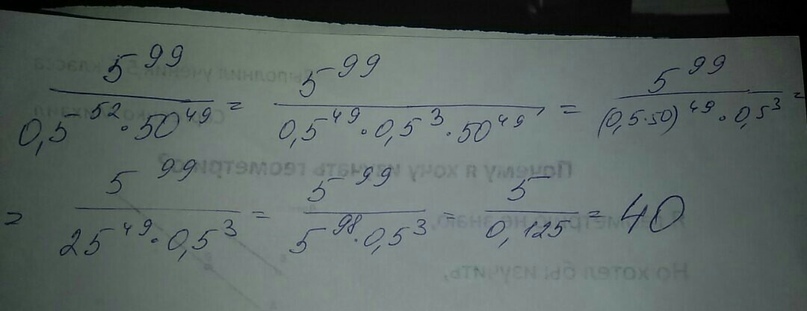 5^99 / (0,5^52 · 50^49) = 5^99 / (0,5^49 · 0,5^3 · 50^49) = 5^99 / ((0,5·50)^49 · 0,5^3) =
= 5^99 / (25^49 · 0,5^3) = 5^99 / (5^98 · 0,5^3) = 5 / 0,125 = 40
Почему я хочу изучать геометрию?
Но хотел бы изучить,